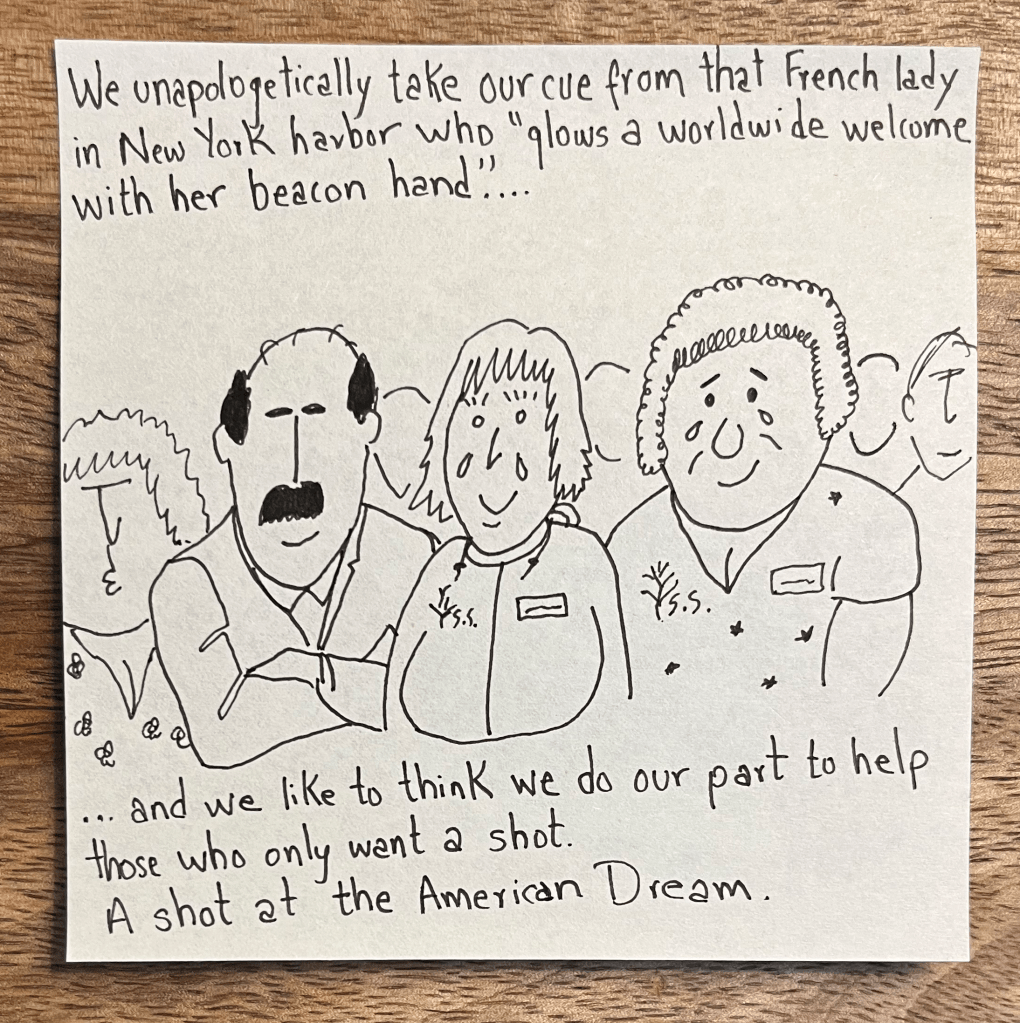 We unapologetically take our cue from that French lady
in New York harbor who "glows a worldwide welcome
with her beacon hand"....
S.S.
S.S.
... and we like to think we do our part to help
those who only want a shot.
A shot at the American Dream.